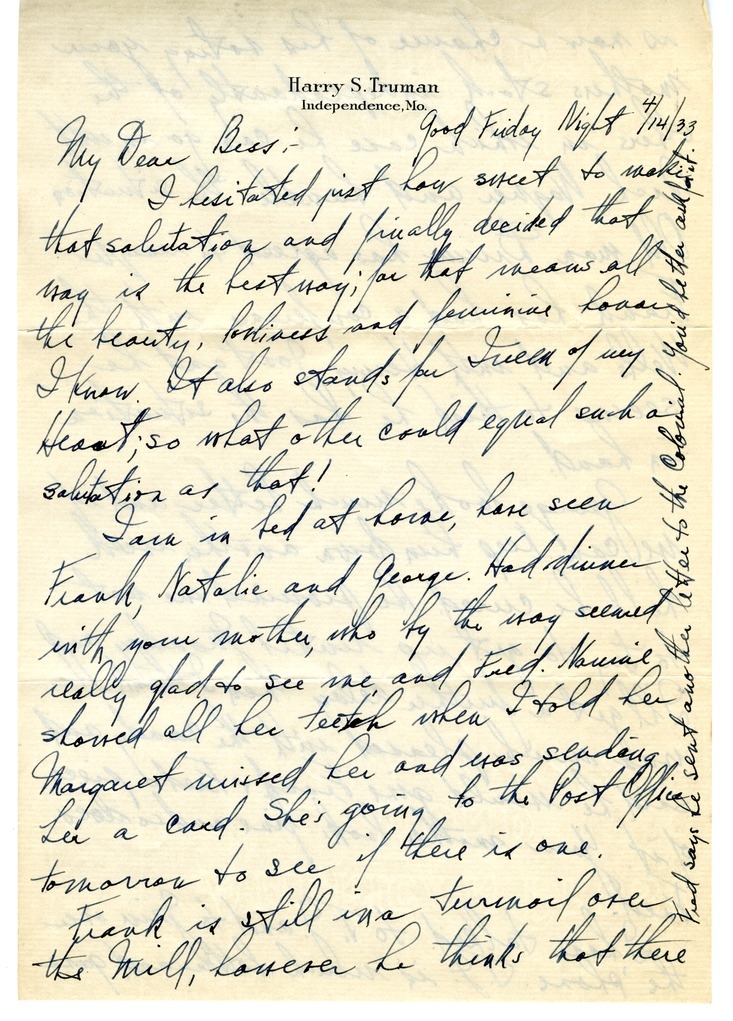 Harry S. Truman
Independence, Mo.
Good Friday Night 4/14/33
My Dear Bess:-
I hesitated just how sweet to make
that salutation and finally decided that
way is the best way; for that means all
the beauty, lonliness and feminine honor
I know. It also stands for Queen of my
Heart; so what other could equal such a
salutation as that!
I am in bed at home, have seen
Frank, Natalie and George. Had dinner
with your mother, who by the way seemed
really glad to see me, and Fred. Nannie
showed all her teeth when I told her
Margaret missed her and was sending
her a card. She's going to the Post Office
tomorrow to see if there is one.
Frank is still in a turmoil over
the Mill, however he thinks that there
Fred says he sent another letter to the Colonial. You'd better ask for it.